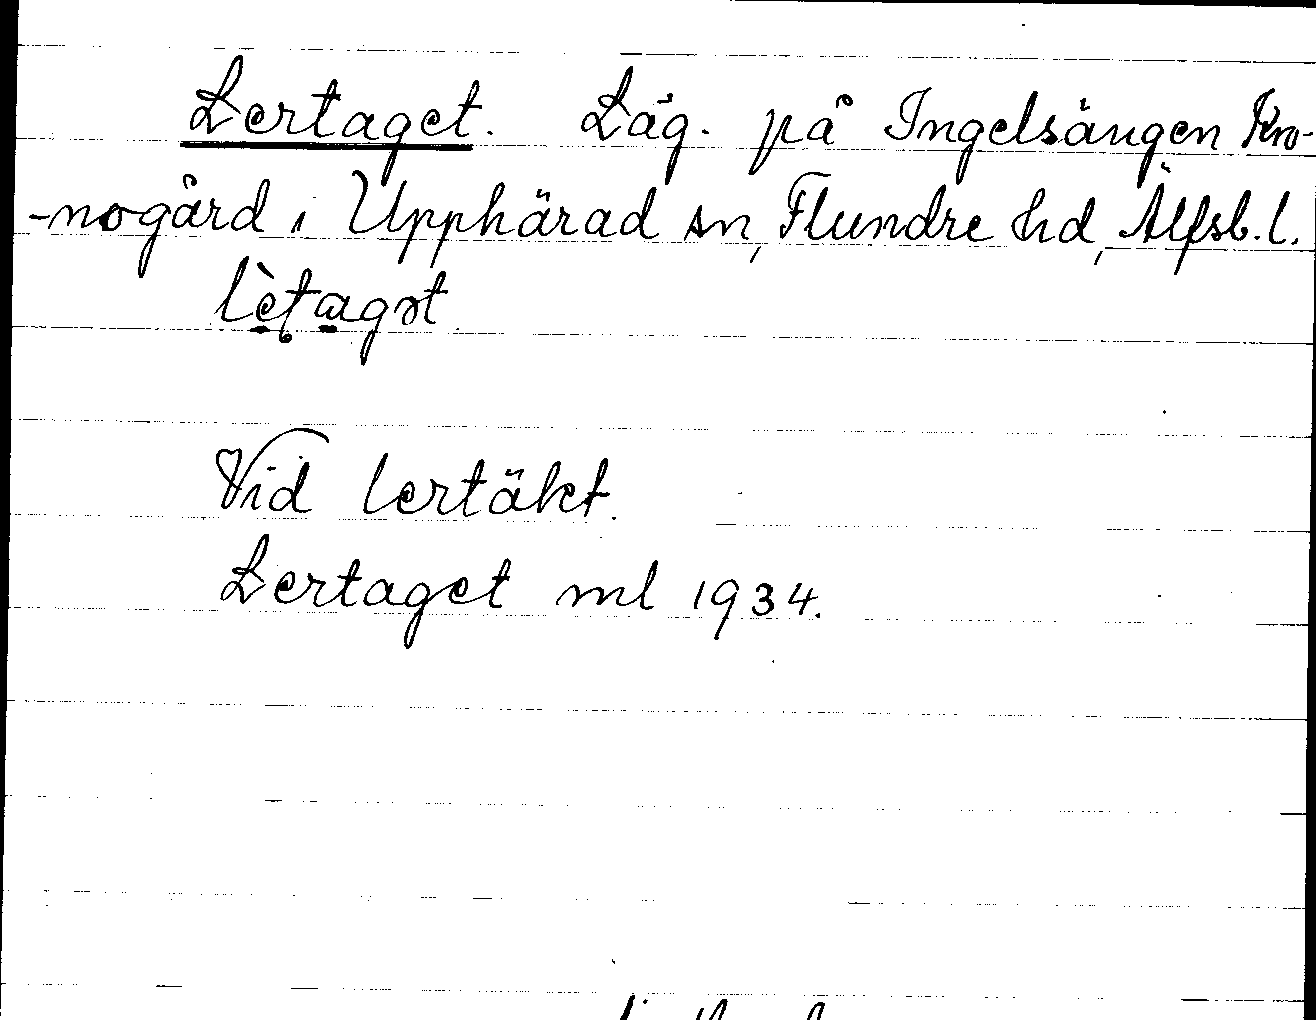 Lertaget. Läg. på Ingelsängen Kro-
-nogård i Upphärad sn, Flundre hd, Älfsb. l.
lètagət
Vid lertäkt.
Lertaget ml 1934.